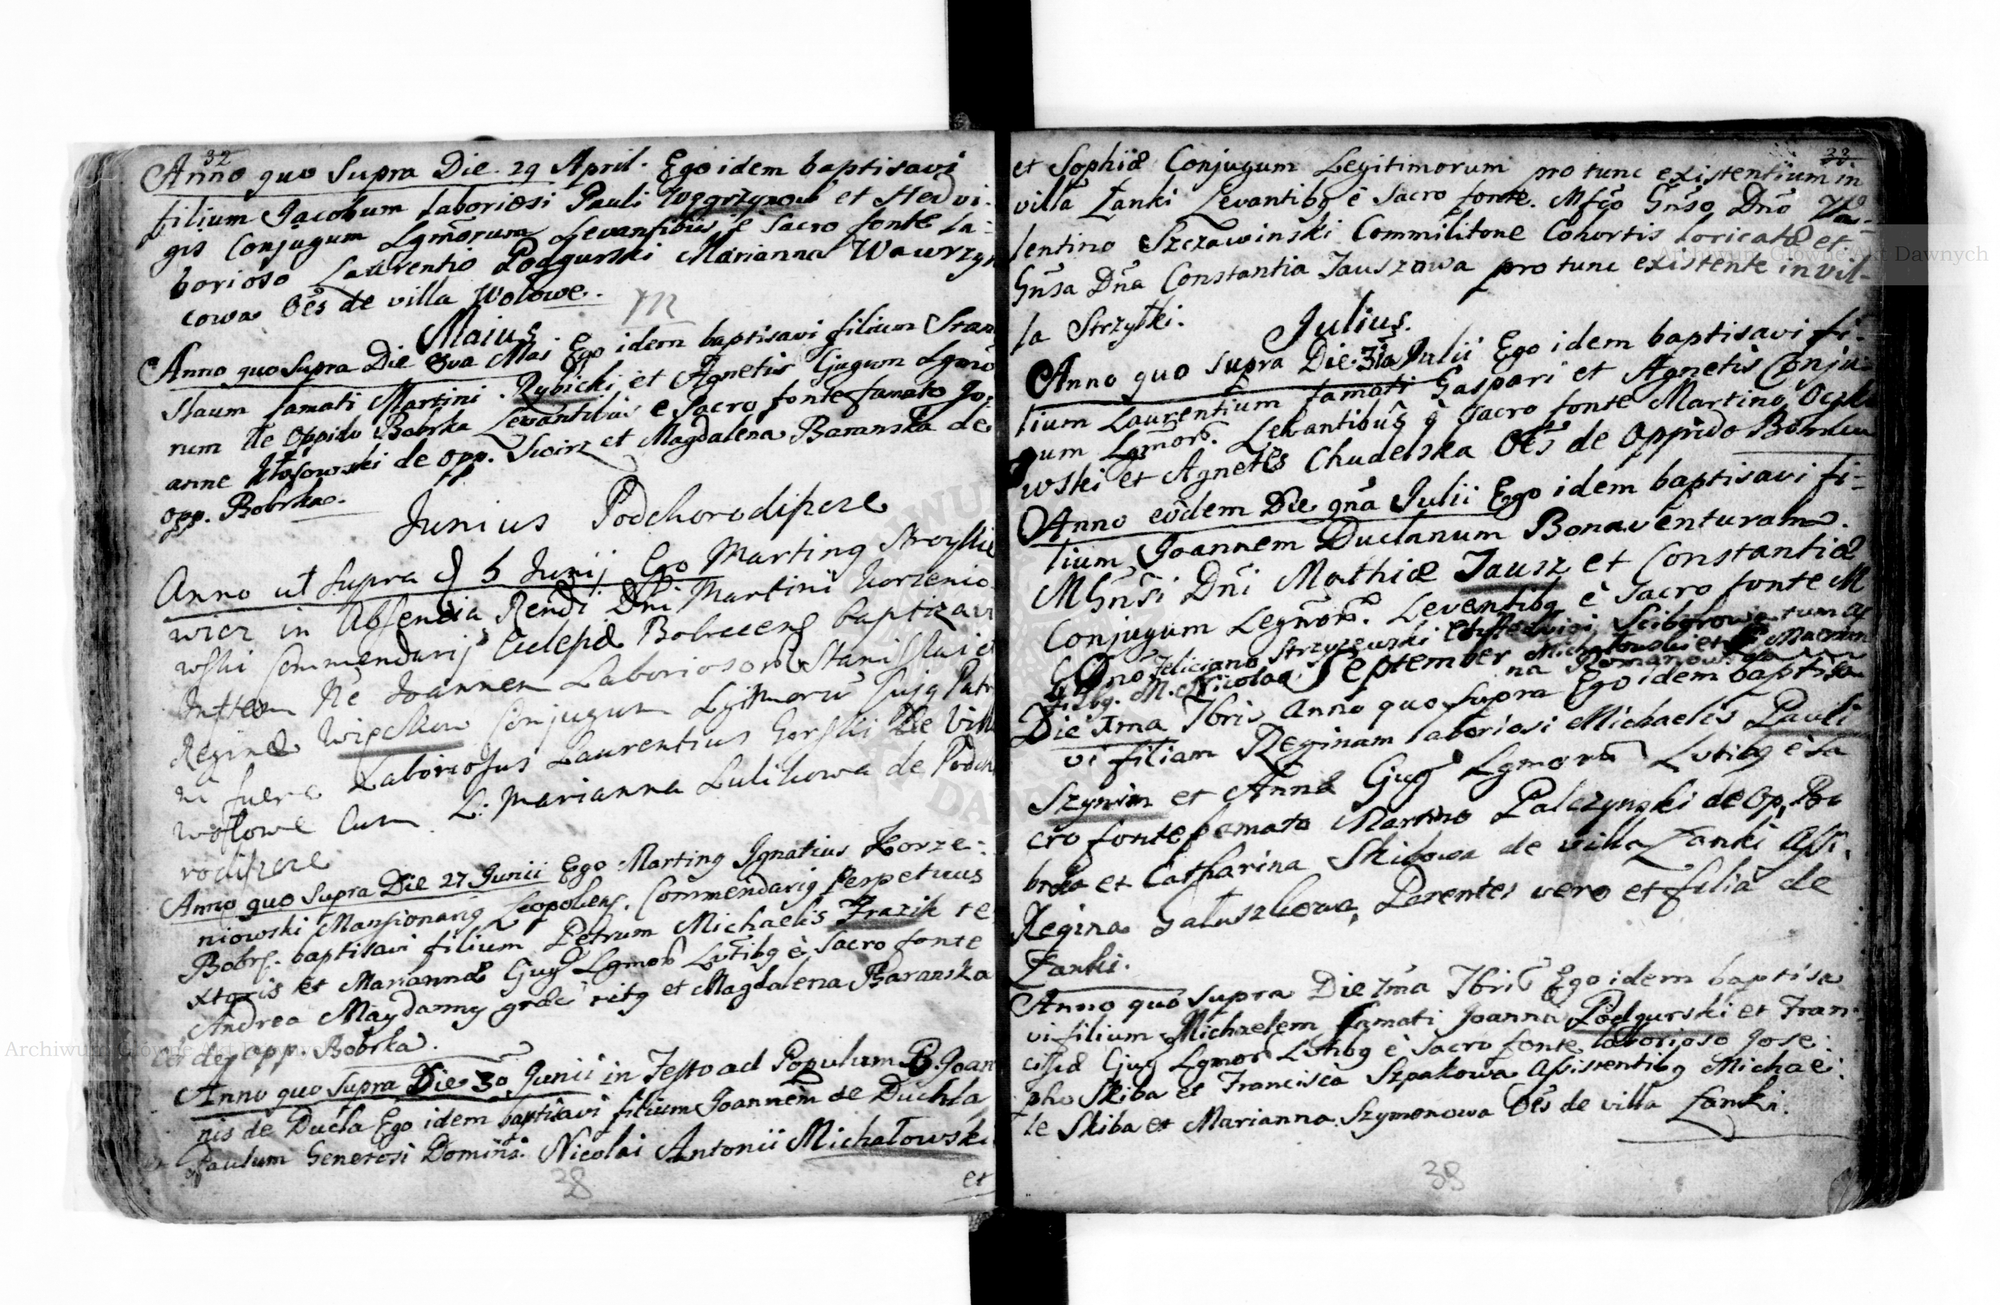 32
Anno quo Supra Die 29 April. Ego idem baptisavi
filium Jacobum laboriosi Pauli Węgrzynowi et Hedvi-
gis Conjugum Lgmorum Levantibus e Sacro fonte La-
borioso Laurentio Podgurski Marianna Wawrzyn
cowa Oes de villa Wolowe.
Maius
Anno quo Supra Die 8va Mai Ego idem baptisavi filium Stani
slaum famati Martini Rybicki et Agnetis Gugum Lgmo
rum de oppido Bobrka Levantibus e Sacro fonte famato Jo-
anne Kłosowski de opp. et Magdalena Baranska de
opp. Bobrka.
Junius Podhorodiszcze
Anno ut Supra d 5 Junij Ego Marting
wicz in Absencia Rendi Dni Martini Korzenio
wski Commendarij Eclesiæ Bobrecens baptizavi
Inftem Ne Joannem Laboriosorum Stanislai et
Reginæ Conjugum Lgtimorum
ni fuere Laboriosus Laurentius Gorski De Villa
Wołowe Cum L: Marianna Lulikowa de Podho
rodiszcze
Anno quo Supra Die 27 Junii Ego Marting Ignatius Korze-
niowski Mansionarig Leopolens. Commendarig perpetuus
Bobrs. baptisavi filium Petrum Michaelis Frazik te
xtoris et Mariannæ Gug Lgmor Lvtibg è Sacro fonte
Andrea Maydanny græci ritg et Magdalena Baranska
de opp. Bobrka.
Anno quo Supra Die 30 Junii in Festo ad Populum B. Joan
nis de Ducla Ego idem baptisavi filium Joannem de Duckla
Paulum Generosi Domini Nicolai Antonii Michałowski
et
38
33.
et Sophiæ Conjugum Legitimorum pro tunc existentium in
villa Łanki Levantibg è Sacro fonte. Mfco Gnso Dno Va-
lentino Szczawinski Commilitone Cohortis loricatæ et
Gnsa Dna Constantia Jauszowa pro tunc existente in vil-
la Strzyłki.
Julius.
Anno quo Supra Die 3tia Julii Ego idem baptisavi fi-
lium Laurentium famati Gaspari et Agnetis Conju
gum Lgmor. Levantibus è Sacro fonte Martino
wski et Agnetes Chudelska Oes de Oppido Bobrka
Anno eodem Die 9na Julii Ego idem baptisavi fi-
lium Joannem Duclanum Bonaventuram
MGnsi Dni Mathiæ Jausz et Constantiæ
Conjugum Legmor. Leventibg è Sacro fonte M
G Dno Feliciano Strzyzewski
M. Nicolao Michałowski et Marian
na Romanowska
September
Die 1ma 7bris Anno quo supra Ego idem baptisa
vi filiam Reginam laboriosi Michaelis Pauli
Szynin et Annæ Gug Lgmorum Lvtibg è Sa
cro fonte famato Martino Palczynski de Op. Bo
brka et Catharina Skibowa de villa Łanki Assi.
Regina Galuszkowa, Parentes vero et filia de
Łanki.
Anno quo Supra Die 7ma 7bris Ego idem baptisa
vi filium Michaelem famati Joanna Podgurski et Fran-
ciscæ Gug Lgmor Lvtibg è Sacro fonte laborioso Jose:
pho Skiba et Francisca Szpakowa Assistentibg Michae:
le Skiba et Marianna Szymonowa Oes de villa Łanki.
38
Archiwum Główne Akt Dawnych
Archiwum Główne Akt Dawnych